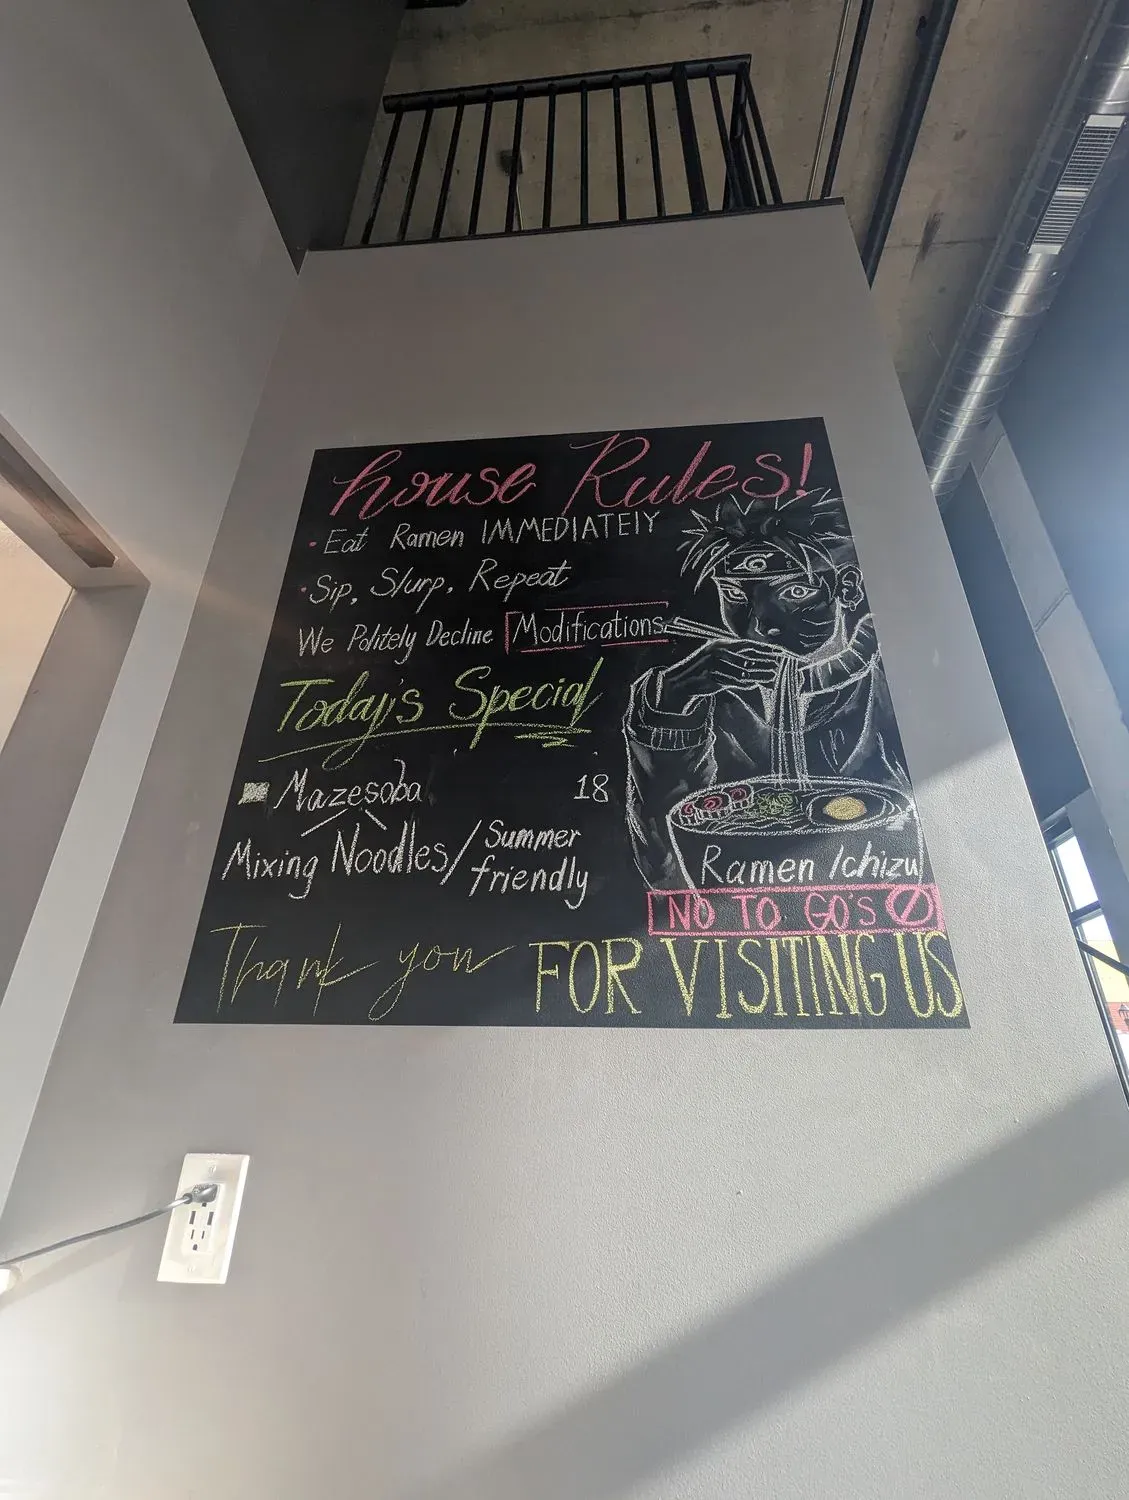 house Rules!
• Eat Ramen IMMEDIATElY
• Sip, Slurp, Repeat
We Politely Decline Modifications
Today's Special
Mazesoba 18
Mixing Noodles/Summer friendly
Ramen Ichizu
NO TO GO'S
Thank you FOR VISITING US